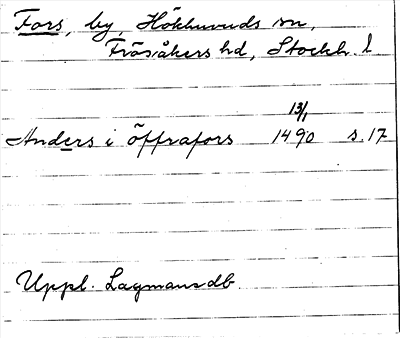 Fors, by, Hökhuvuds sn,
Frösåkers hd, Stockh. l.
13/1
Anders i öffrafors 1490 s. 17
Uppl. Lagmansdb.